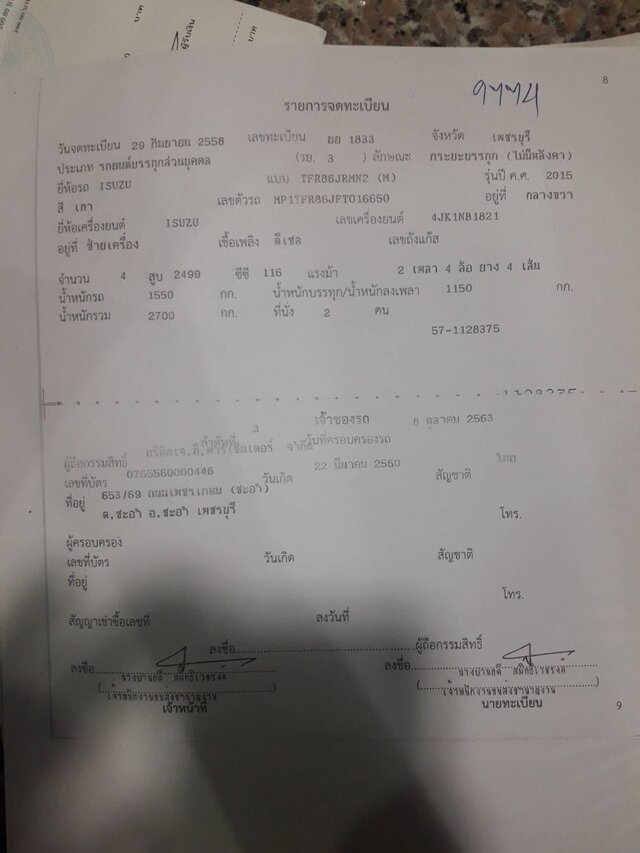 บาท
ผู้รับเงิน
บาท
8
รายการจดทะเบียน
วันจดทะเบียน 29 กันยายน 2558 เลขทะเบียน บย 1833 จังหวัด เพชรบุรี
ประเภท รถยนต์บรรทุกส่วนบุคคล (รย. 3 ) ลักษณะ กระบะบรรทุก (ไม่มีหลังคา)
ยี่ห้อรถ ISUZU แบบ TFR86JRMN2 (M) รุ่นปี ค.ศ. 2015
สี เทา เลขตัวรถ MP1TFR86JFT016650 อยู่ที่ กลางขวา
ยี่ห้อเครื่องยนต์ ISUZU เลขเครื่องยนต์ 4JK1NB1821
อยู่ที่ ซ้ายเครื่อง เชื้อเพลิง ดีเซล เลขถังแก๊ส
จำนวน 4 สูบ 2499 ซีซี 116 แรงม้า 2 เพลา 4 ล้อ ยาง 4 เส้น
น้ำหนักรถ 1550 กก. น้ำหนักบรรทุก/น้ำหนักลงเพลา 1150 กก.
น้ำหนักรวม 2700 กก. ที่นั่ง 2 คน
57-1128375
เจ้าของรถ
ลำดับที่ 3 วันที่ครอบครองรถ 8 ตุลาคม 2563
ผู้ถือกรรมสิทธิ์ บริษัท จำกัด
เลขที่บัตร 0765560000446 วันเกิด 22 มีนาคม 2560 สัญชาติ ไทย
ที่อยู่ 653/69 ถนนเพชรเกษม (ชะอำ)
ต.ชะอำ อ.ชะอำ เพชรบุรี โทร.
ผู้ครอบครอง
เลขที่บัตร วันเกิด สัญชาติ
ที่อยู่
โทร.
สัญญาเช่าซื้อเลขที่ ลงวันที่
ลงชื่อ ผู้ถือกรรมสิทธิ์
ลงชื่อ ลงชื่อ
เจ้าพนักงานขนส่งชำนาญงาน เจ้าพนักงานขนส่งชำนาญงาน
เจ้าหน้าที่ นายทะเบียน
9